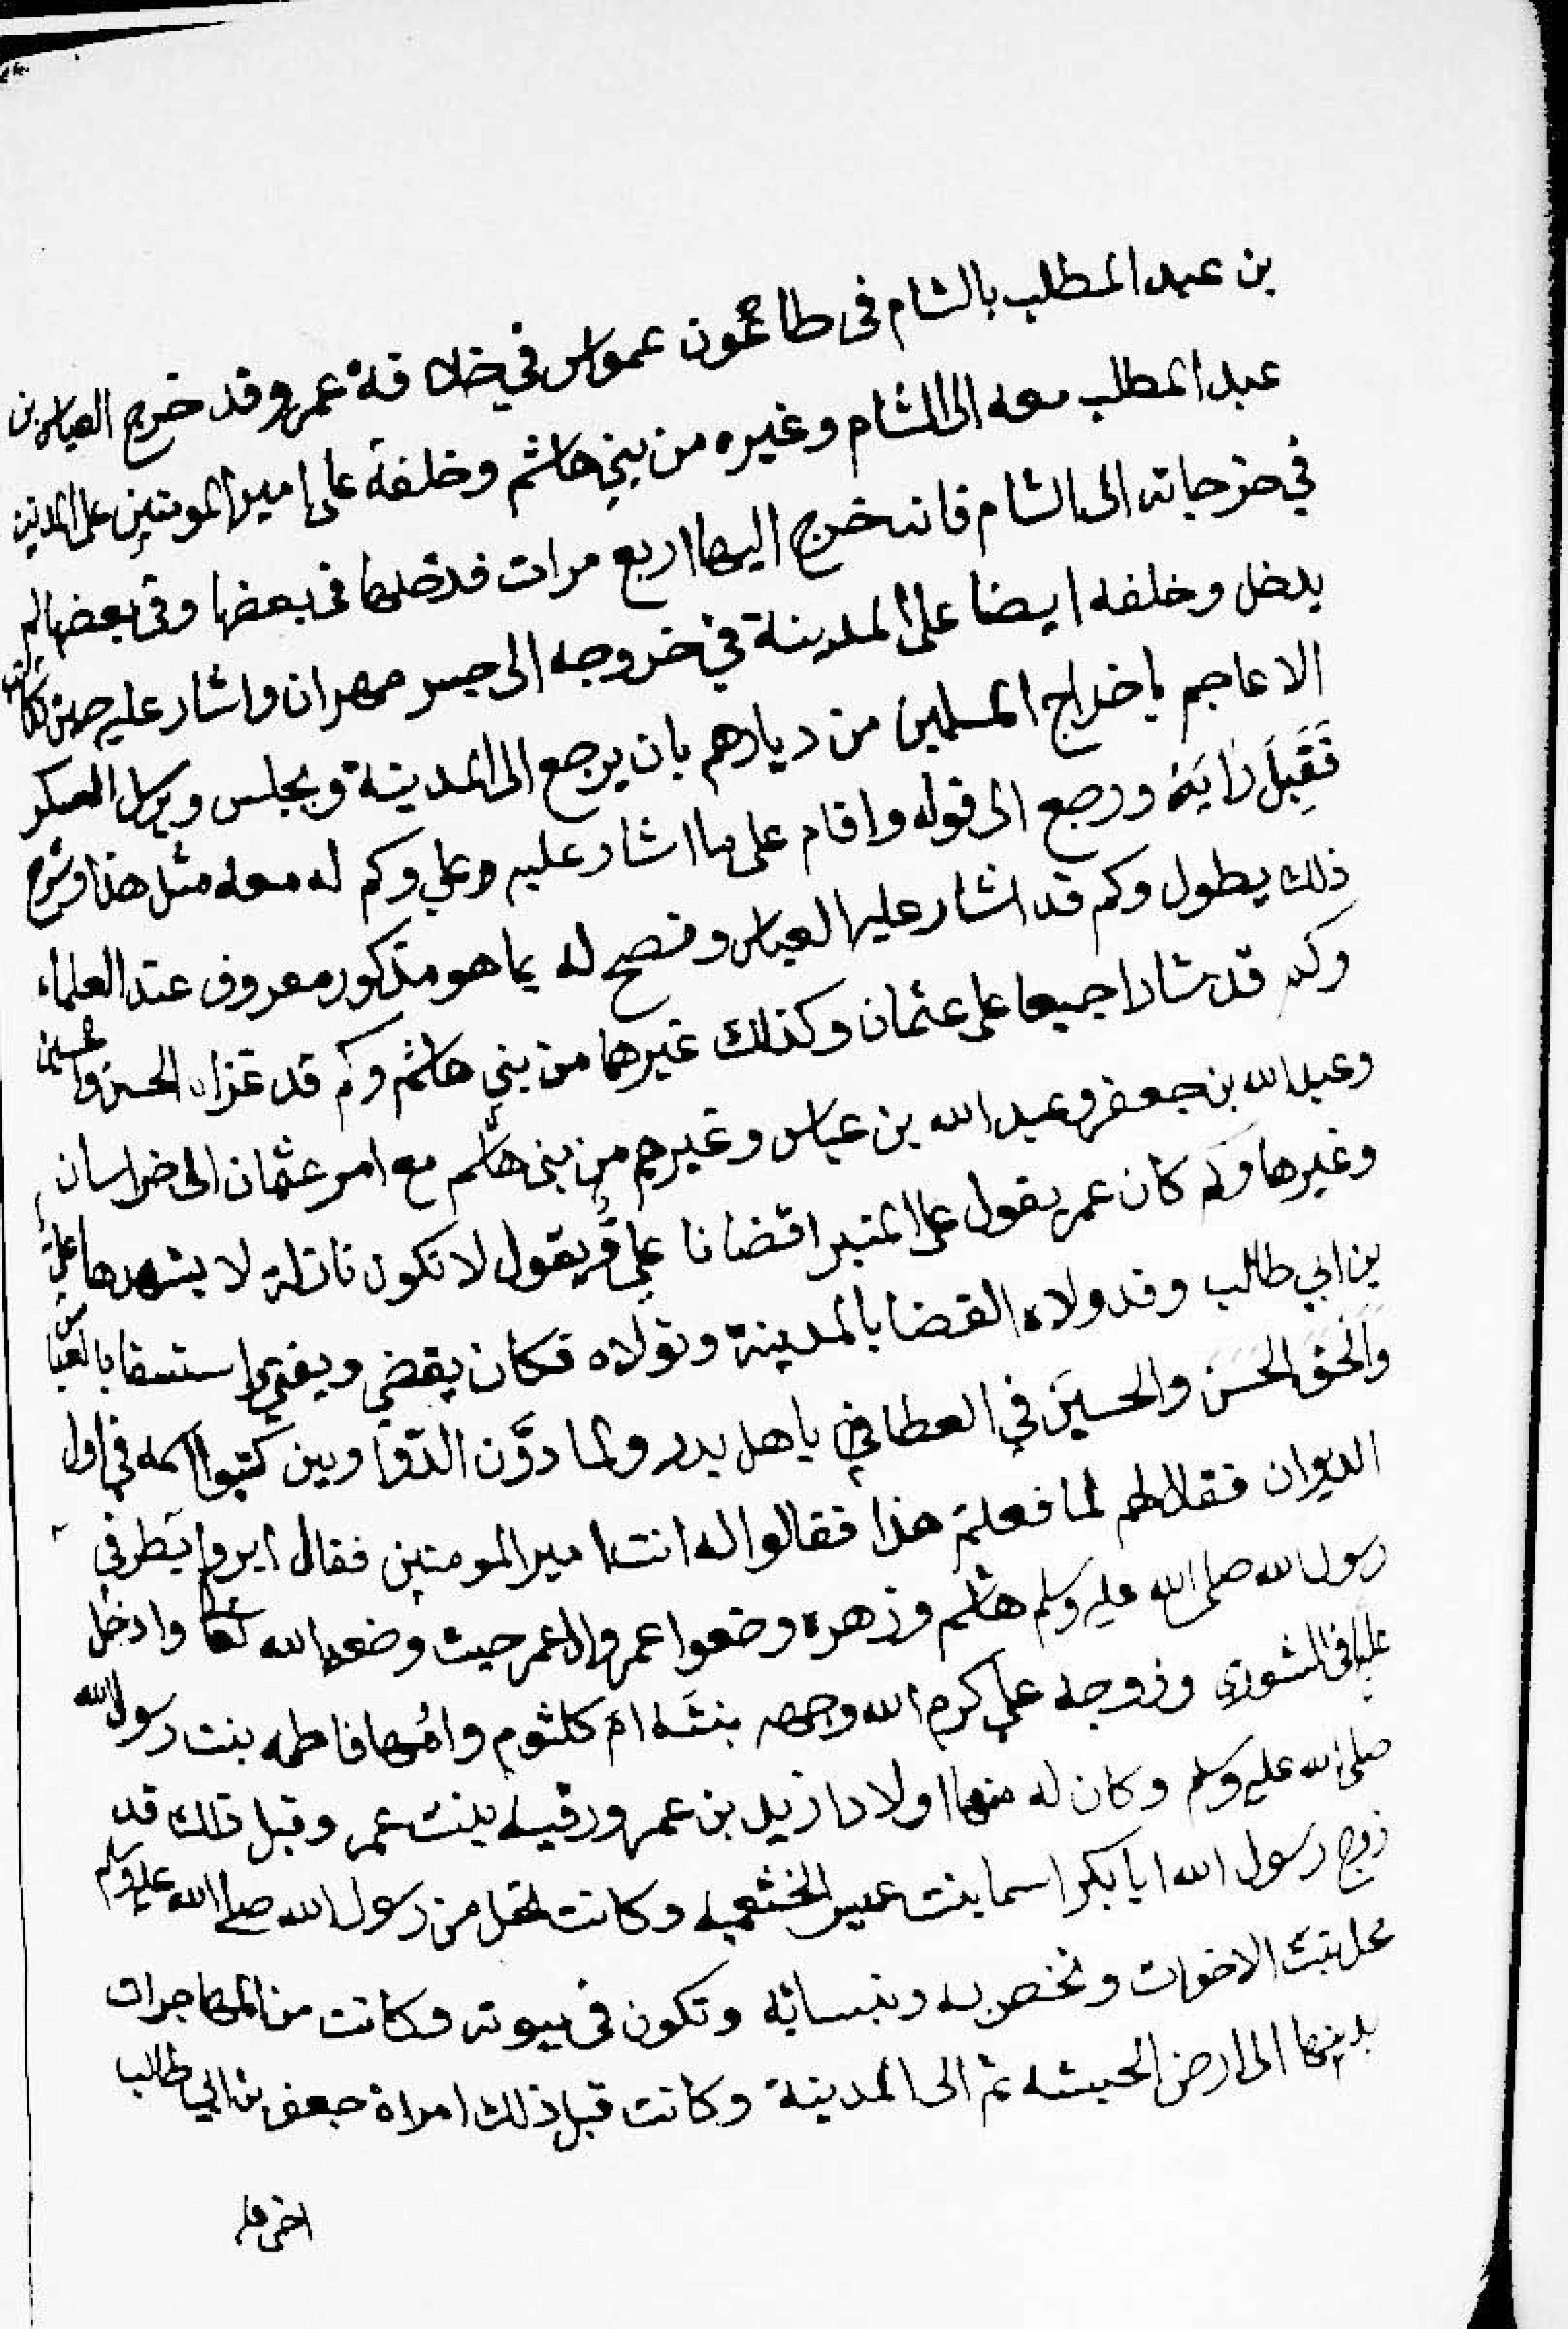 بن عبد المطلب بالشام فى طاعمون عمواس في خلا فة عمر وقد خرج العباس بن
عبد المطلب معه الى الشام وغيره من بني هاشم وخلفة على امير المومنين على المدينه
في خرجاته الى الشام فانه خرج اليها اربع مرات فدخلها فى بعضها وفى بعضها لم
يدخل وخلفه ايضا على المدينة في خروجه الى جسر مهران واشار عليه حين تكاتب
الاعاجم باخراج المسلمين من ديارهم بان يرجع الى المدينة ويجلس ويرسل العسكر
فَقَبِلَ رَايَهُ ورجع الى قوله واقام على ما اشار عليه وعلي وكم له معه مثل هذا وشرح
ذلك يطول وكم قد اشار عليه العباس ونصح له بما هو مذكور معروف عند العلماء
وكم قد شارا جميعا على عثمان وكذلك غيرهما من بني هاشم وكم قد غزا الحسن والحسين
وعبد الله بن جعفر وعبد الله بن عباس وغيرهم من بنى هاشم مع امر عثمان الى خراسان
وغيرها وكم كان عمر يقول على المنبر اقضانا علي ويقول لا تكون نازلة لا يشهدها علي
بن ابي طالب وقد ولاه القضا بالمدينة وتولاه فكان يقضي ويفتي واستسقا بالعباس
والحق الحسن والحسين في العطا في باهل بدر ولما دوَّن الدّوا وين كتبوا اسمه في اول
الديوان فقال لهم لما فعلتم هذا فقالوا له انت امير المومنين فقال ابروا بَطرفي
رسول الله صلى الله عليه وسلم هاشم وزهره وضعوا عمر وال عمر حيث وضعه الله تعالى وادخل
عليا في الشورى وزوجه علي كرم الله وجهه بنته ام كلثوم وامها فاطمه بنت رسول الله
صلى الله عليه وسلم وكان له منها اولادا زيد بن عمر ورقيه بنت عمر وقبل ذلك قد
زوج رسول الله ابا بكر اسما بنت عميس الخثعميه وكانت تحل من رسول الله صلى الله عليه وسلم
محل بنت الاخوات وتختص به وبنسائه وتكون فى بيوته وكانت من المهاجرات
بدينها الى ارض الحبشه ثم الى المدينة وكانت قبل ذلك امراة جعفر بن ابي طالب